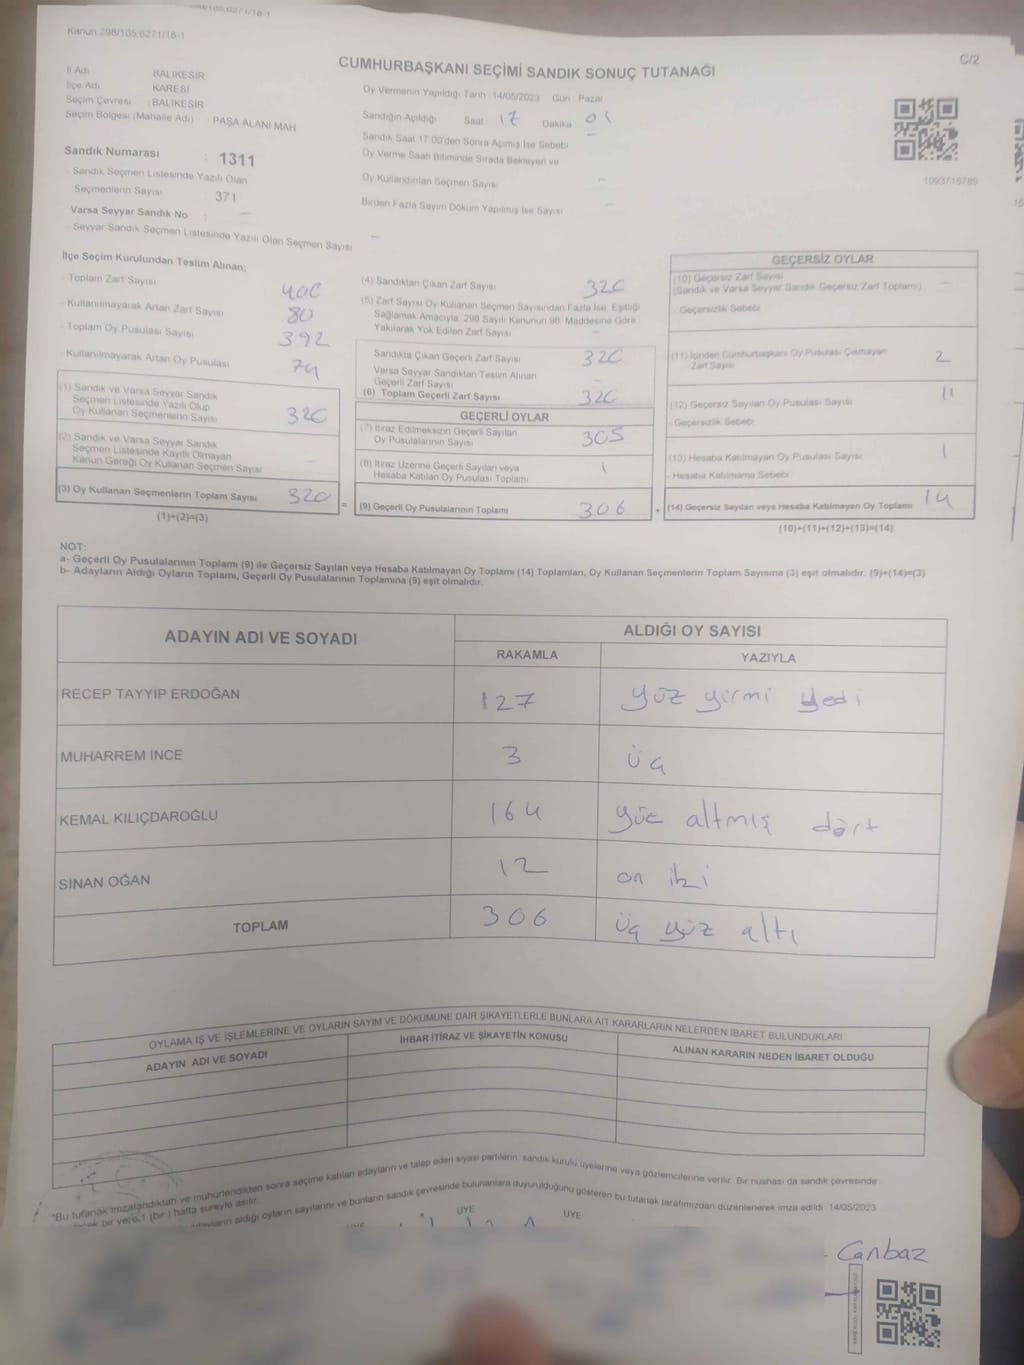 Kanun:298/105,6271/18-1
C/2
CUMHURBAŞKANI SEÇİMİ SANDIK SONUÇ TUTANAĞI
İl Adı BALIKESİR
İlçe Adı KARESİ
Seçim Çevresi : BALIKESİR
Seçim Bölgesi (Mahalle Adı) PAŞA ALANI MAH
Sandık Numarası : 1311
Sandık Seçmen Listesinde Yazılı Olan
Seçmenlerin Sayısı 371
Varsa Seyyar Sandık No : —
Seyyar Sandık Seçmen Listesinde Yazılı Olan Seçmen Sayısı —
Oy Vermenin Yapıldığı Tarih : 14/05/2023 Gün Pazar
Sandığın Açıldığı Saat 17 Dakika 01
Sandık Saat 17:00'den Sonra Açımış İse Sebebi —
Oy Verme Saati Bitiminde Sırada Bekleyen ve
Oy Kullandırılan Seçmen Sayısı —
Birden Fazla Sayım Döküm Yapılmış İse Sayısı —
1093715789
İlçe Seçim Kurulundan Teslim Alınan;
Toplam Zarf Sayısı 400
Kullanılmayarak Artan Zarf Sayısı 80
Toplam Oy Pusulası Sayısı 392
Kullanılmayarak Artan Oy Pusulası 74
(1) Sandık ve Varsa Seyyar Sandık
Seçmen Listesinde Yazılı Olup
Oy Kullanan Seçmenlerin Sayısı 320
(2) Sandık ve Varsa Seyyar Sandık
Seçmen Listesinde Kayıtlı Olmayan
Kanun Gereği Oy Kullanan Seçmen Sayısı —
(3) Oy Kullanan Seçmenlerin Toplam Sayısı 320
(1)+(2)=(3)
=
(4) Sandıktan Çıkan Zarf Sayısı 320
(5) Zarf Sayısı Oy Kullanan Seçmen Sayısından Fazla İse, Eşitliği
Sağlamak Amacıyla, 298 Sayılı Kanunun 98. Maddesine Göre
Yakılarak Yok Edilen Zarf Sayısı —
Sandıkta Çıkan Geçerli Zarf Sayısı 320
Varsa Seyyar Sandıktan Teslim Alınan
Geçerli Zarf Sayısı —
(6) Toplam Geçerli Zarf Sayısı 320
GEÇERLİ OYLAR
(7) İtiraz Edilmeksizin Geçerli Sayılan
Oy Pusulalarının Sayısı 305
(8) İtiraz Üzerine Geçerli Sayılan veya
Hesaba Katılan Oy Pusulası Toplamı 1
(9) Geçerli Oy Pusulalarının Toplamı 306
+
GEÇERSİZ OYLAR
(10) Geçersiz Zarf Sayısı
(Sandık ve Varsa Seyyar Sandık Geçersiz Zarf Toplamı) —
- Geçersizlik Sebebi
(11) İçinden Cumhurbaşkanı Oy Pusulası Çıkmayan
Zarf Sayısı 2
(12) Geçersiz Sayılan Oy Pusulası Sayısı 11
- Geçersizlik Sebebi
(13) Hesaba Katılmayan Oy Pusulası Sayısı 1
- Hesaba Katılmama Sebebi
(14) Geçersiz Sayılan veya Hesaba Katılmayan Oy Toplamı 14
(10)+(11)+(12)+(13)=(14)
NOT:
a- Geçerli Oy Pusulalarının Toplamı (9) ile Geçersiz Sayılan veya Hesaba Katılmayan Oy Toplamı (14) Toplamları, Oy Kullanan Seçmenlerin Toplam Sayısına (3) eşit olmalıdır. (9)+(14)=(3)
b- Adayların Aldığı Oyların Toplamı, Geçerli Oy Pusulalarının Toplamına (9) eşit olmalıdır.
ADAYIN ADI VE SOYADI
ALDIĞI OY SAYISI
RAKAMLA YAZIYLA
RECEP TAYYİP ERDOĞAN 127 yüz yirmi yedi
MUHARREM İNCE 3 üç
KEMAL KILIÇDAROĞLU 164 yüz altmış dört
SİNAN OĞAN 12 on iki
TOPLAM 306 üç yüz altı
OYLAMA İŞ VE İŞLEMLERİNE VE OYLARIN SAYIM VE DÖKÜMÜNE DAİR ŞİKAYETLERLE BUNLARA AİT KARARLARIN NELERDEN İBARET BULUNDUKLARI
ADAYIN ADI VE SOYADI
İHBAR İTİRAZ VE ŞİKAYETİN KONUSU
ALINAN KARARIN NEDEN İBARET OLDUĞU
"Bu tutanak imzalandıktan ve mühürlendikten sonra seçime katılan adayların ve talep eden siyasi partilerin sandık kurulu üyelerine veya gözlemcilerine verilir. Bir nüshası da sandık çevresinde
bir yere 1 (bir) hafta süreyle asılır.
aldığı oyların sayılarını ve bunların sandık çevresinde bulunanlara duyurulduğunu gösteren bu tutanak tarafımızdan düzenlenerek imza edildi. 14/05/2023
ÜYE
ÜYE
Canbaz